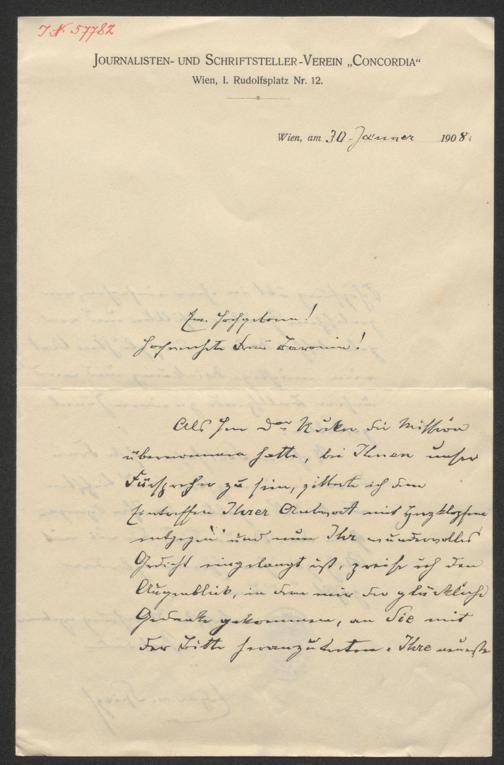 J.N. 57782
JOURNALISTEN- UND SCHRIFTSTELLER-VEREIN „CONCORDIA“
Wien, I. Rudolfsplatz Nr. 12.
Wien, am 30. Jänner 1908.
Ew. Hochgeboren!
Hochverehrte Frau Baronin!
Als Herr Dr. die Mission
übernommen hatte, bei Ihnen unser
Fürsprecher zu sein, zitterte ich dem
Eintreffen Ihrer Antwort mit Herzklopfen
entgegen und nun Ihr wundervolles
Gedicht eingelangt ist, preise ich den
Augenblick, in dem mir der glückliche
Gedanke gekommen, an Sie mit
der Bitte heranzutreten. Ihre neueste